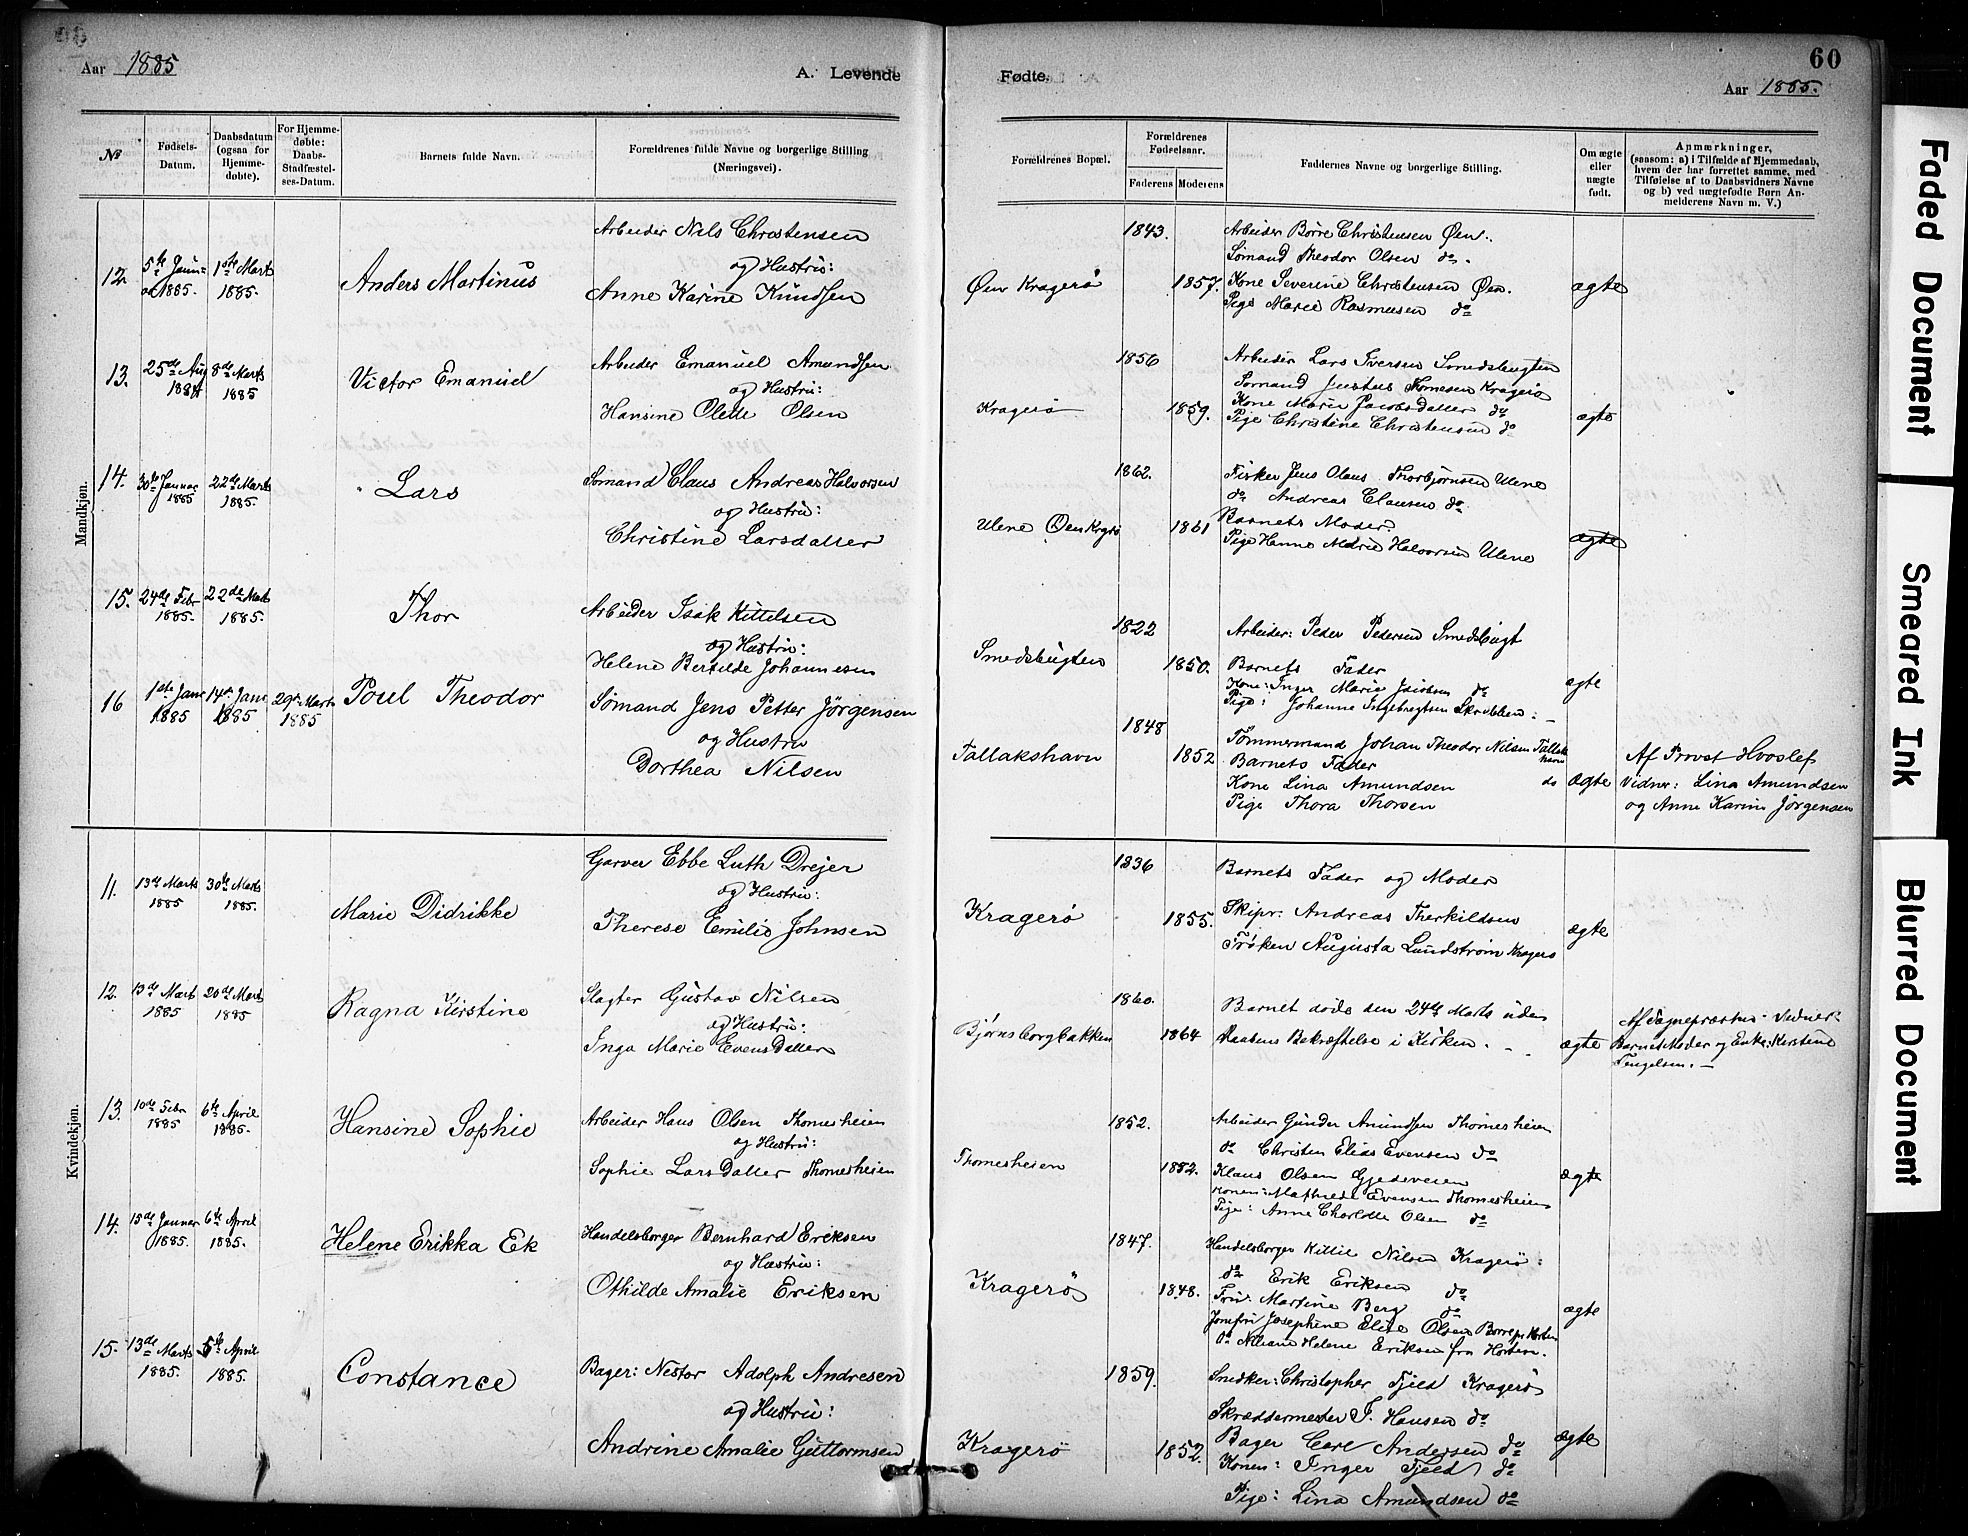 Aar 1885
A. Levende
Fødte.
60
Aar 1885.
№
Fødsels-Datum.
Daabsdatum (ogsaa for Hjemme-døbte).
For Hjemme-døbte: Daabs-Stadfæstel-ses-Datum.
Barnets fulde Navn.
Forældrenes fulde Navne og borgerlige Stilling (Næringsvei).
Forældrenes Bopæl.
Forældrenes Fødselsaar.
Faderens
Moderens
Faddernes Navne og borgerlige Stilling.
Om ægte eller uægte født.
Anmærkninger, (saasom: a) i Tilfælde af Hjemmedaab, hvem der har forrettet samme, med Tilføielse af to Daabsvidners Navne og b) ved uægtefødte Børn An-melderens Navn m. V.)
Mandkjøn.
12.
1ste Marts 1885.
Anders Martinus
Arbeider Nils Christensen
og Hustru:
Anne Karine Knudsen
Øen Kragerø
1843.
1857.
Arbeider Børre Christensen Øen.
Sømand Theodor Olsen do.
Kone Severine Christensen Øen.
Pige Marie Rasmusen do
ægte
13.
25de Aug 1884
8de Marts 1885
Victor Emanuel
Arbeider Emanuel Amundsen
og Hustru:
Hansine Olede Olsen
Kragerø
1856
1859.
Arbeider Lars Iversen Smedsbugten
Sømand Justus Thomesen Kragerø
Kone Maria Jacobsdatter do
Pige Christine Christensen do
ægte
14.
30te Januar 1885
22de Marts 1885.
Lars
Sømand Claus Andreas Halvorsen
og Hustru:
Christine Larsdatter
Ulene Øen Kragrø
1862.
1861
Fisker Jens Olaus Thorbjørnsen Ulene
do Andreas Clausen do
Barnets Moder.
Pige Hanne Marie Halvorsen Ulene
ægte
15.
24de Febr 1885.
22de Marts 1885.
Thor
Arbeider Isak Kittelsen
og Hustru:
Helene Bertilde Johannesen
Smedsbugten
1822
1850.
Arbeider: Peder Pedersen Smedsbugt
Barnets Fader
Kone: Inger Marie Jacobsen do
Pige: Johanne Ingebregtsen Skrubben: -
ægte
16
1ste Janr 1885
14de Janr 1885
29de Marts 1885
Poul Theodor
Sømand Jens Petter Jörgensen
og Hustru
Dorthea Nilsen
Tallakshavn
1848
1852
Tømmermand Johan Theodor Nilsen Tallaks havn
Barnets Fader
Kone Lina Amundsen do
Pige Thora Thorsen
ægte
Af Provst Hvoslef
Vidner: Lina Amundsen
og Anne Karine Jørgensen
Kvindekjøn.
11.
13de Marts 1885
30te Marts 1885.
Marie Didrikke
Garver Ebbe Luth Drejer
og Hustru:
Therese Emilie Johnsen
Kragerö
1836
1855.
Barnets Fader og Moder
Skipr: Andreas Therkildsen
Frøken Augusta Lundstrøm Kragerø
ægte
12.
13de Marts 1885
20de Marts 1885
Ragna Kirstine
Slagter Gustav Nilsen
og Hustru:
Inga Marie EvensDatter
Bjørnsborgbakken
1860.
1864
Barnet døde den 24de Marts uden
Daabens Bekræftelse i Kirken. - -
ægte
Af Sognepræsten - Vidner:
Barnets Moder og Enke: Kirstine
13.
10de Febr 1885
6te April 1885.
Hansine Sophie
Arbeider Hans Olsen Thomesheien
og Hustru:
Sophie LarsDatter Thomesheien
Thomesheien
1852.
1852.
Arbeider Gunder Amundsen Thomesheien
do Christen Elias Evensen do
Klaus Olsen Gjedeveien
Konen: Mathilde Evensen Thomesheien
Pige: Anne Charlotte Olsen do
ægte
14.
15de Januar 1885.
6te April 1885.
Helene Erikka Ek
Handelsborger Bernhard Eriksen
og Hustru:
Othilde Amalie Eriksen
Kragerø
1847.
1848.
Handelsborger Kittil Nilsen Kragerø:
do Erik Eriksen do
Fru: Martine Berg do
Jomfru Josephine Elise Olsen Borre pr Horten
Do Helene Eriksen fra Horten.
ægte
15.
13de Marts 1885.
5te April 1885.
Constance
Bager: Nestor Adolph Andresen
og Hustru:
Andrine Amalie Guttormsen
Kragerø
1859.
1852.
Snedker: Christopher Fjeld Kragerø
Skræddermester F. Hansen do
Bager Carl Andersen do
Konen: Inger Fjeld do
Pige: Lina Amundsen do
ægte
Faded Document
Smeared Ink
Blurred Document